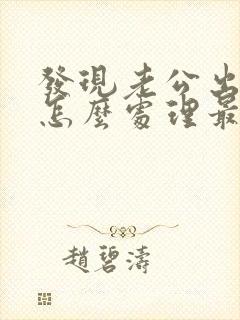 發現老公出
怎麼處理最
趙碧濤